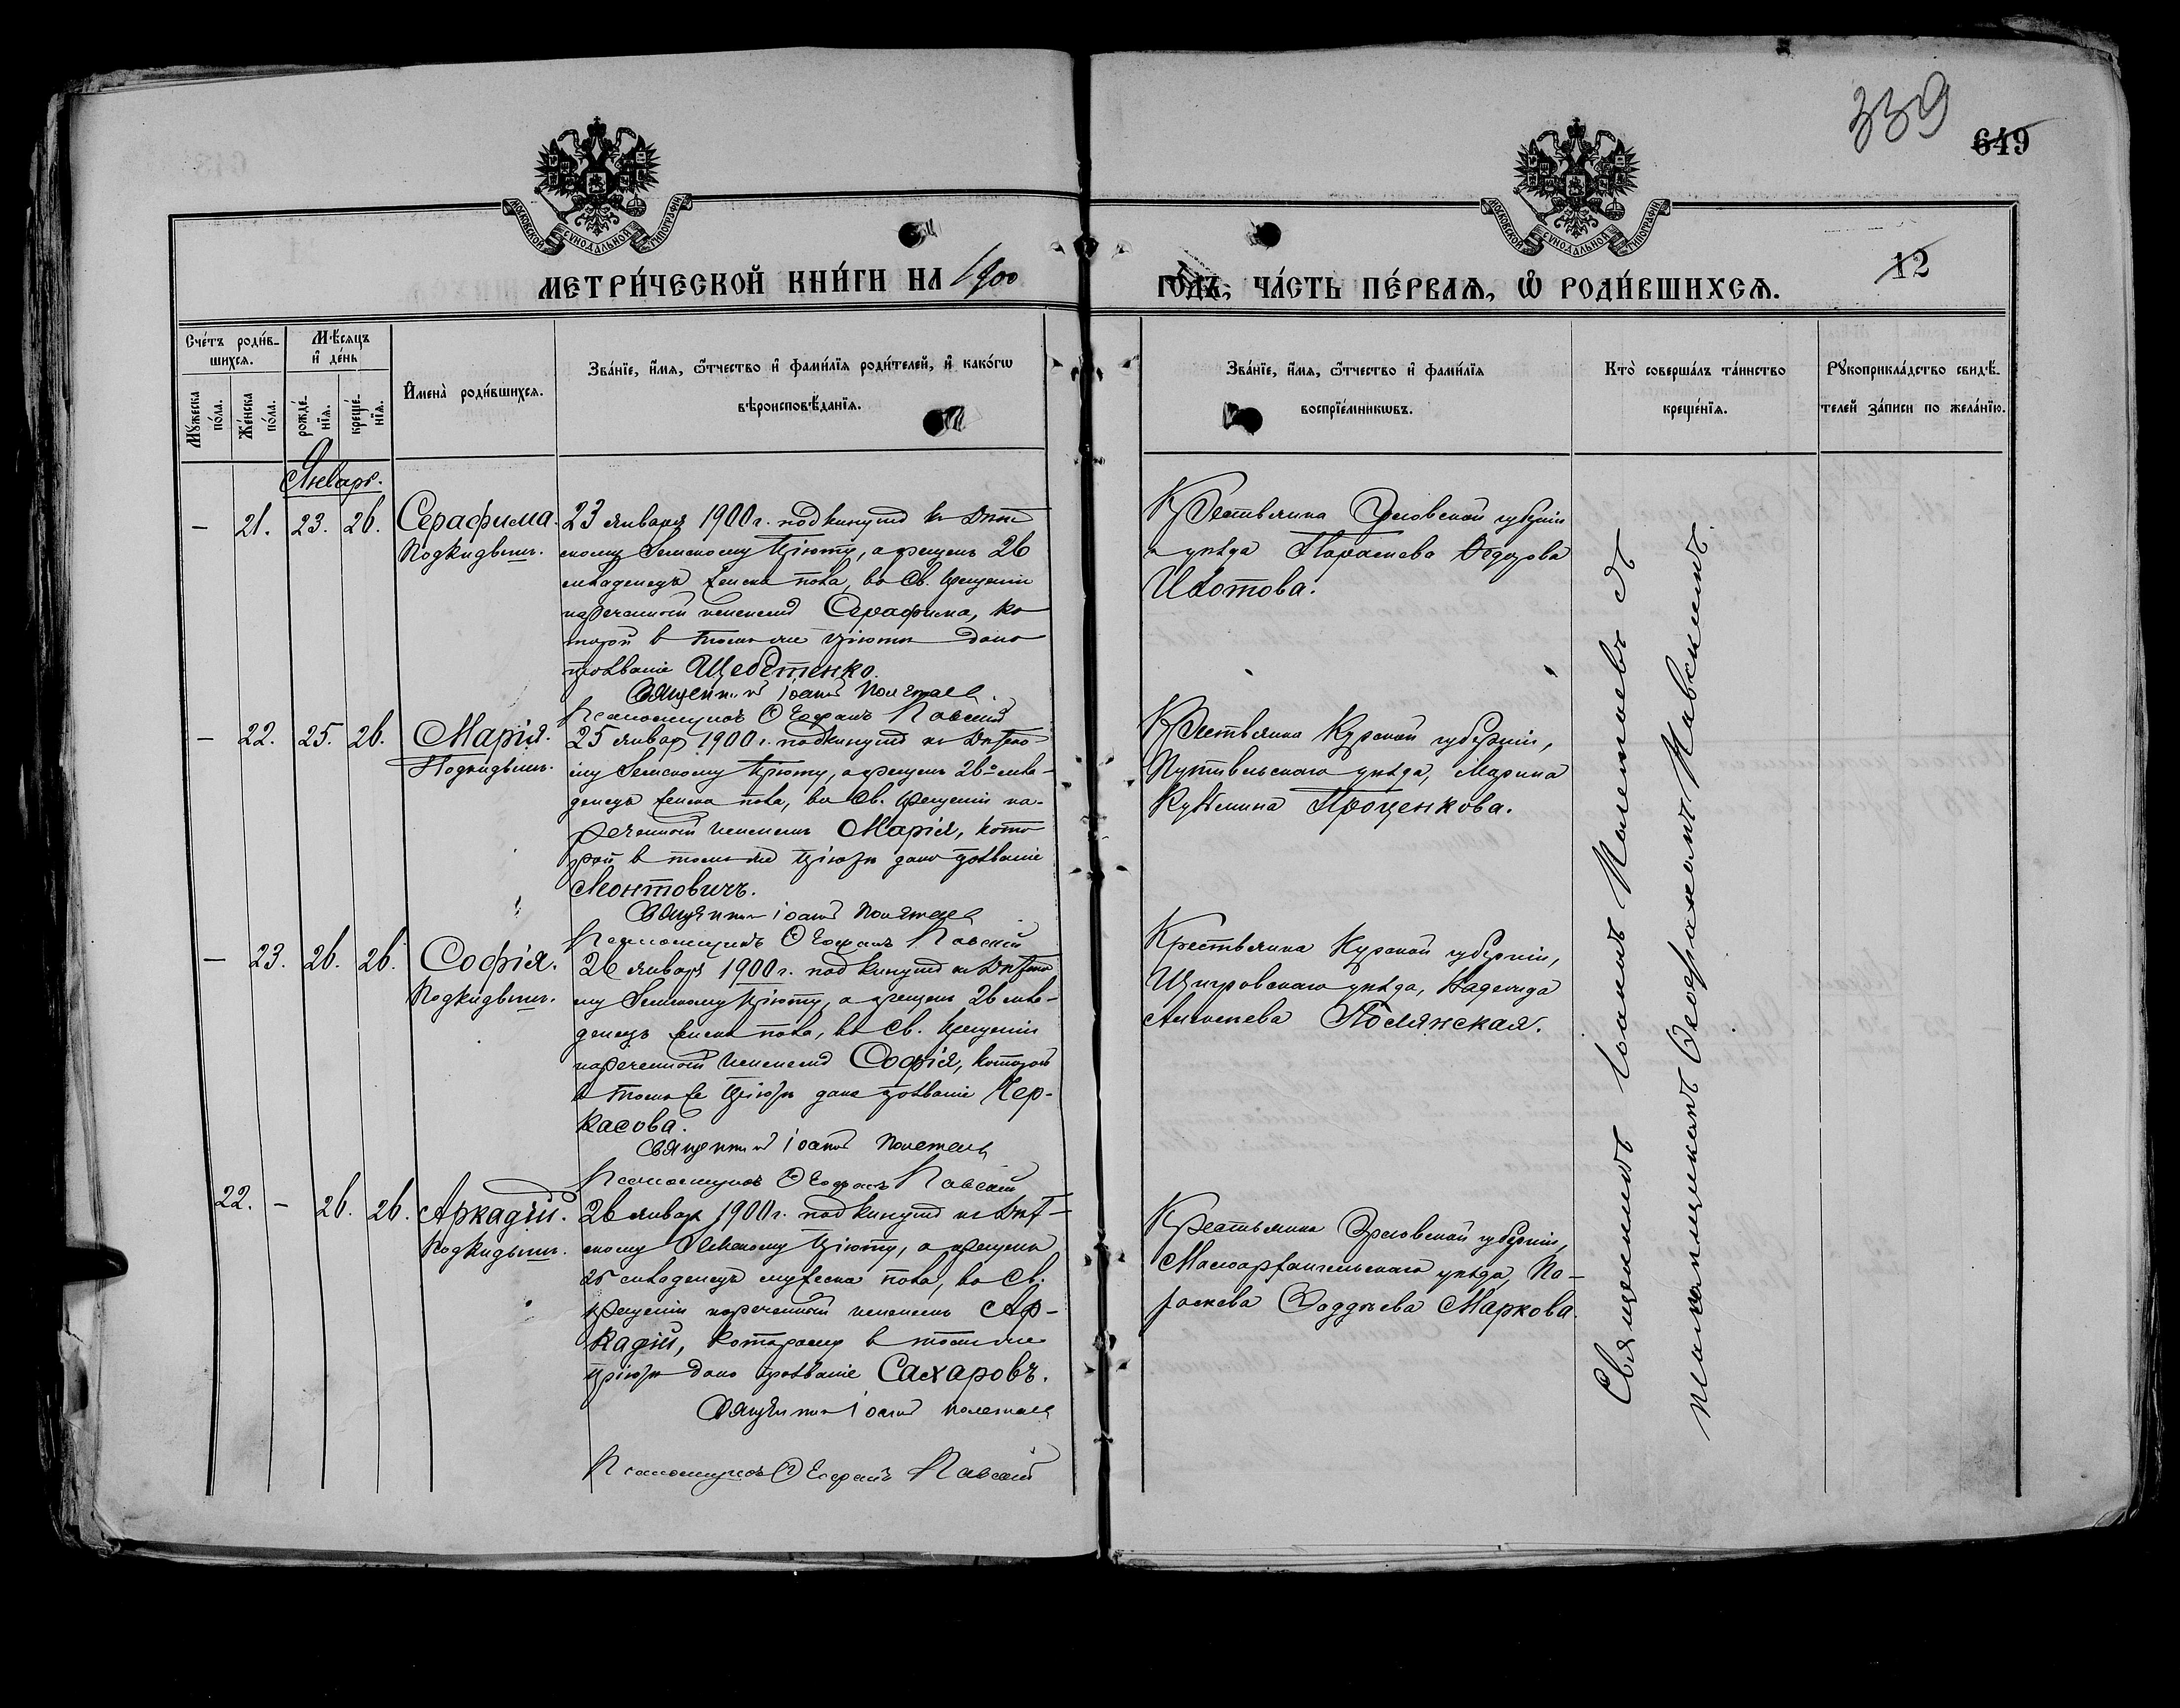 339
649
12
МОСКОВСКОЙ СУНОДАЛЬНОЙ ТИПОГРАФІИ
МОСКОВСКОЙ СУНОДАЛЬНОЙ ТИПОГРАФІИ
МЕТРИ́ЧЕСКОЙ КНИ́ГИ НА 1900
ГОДЪ, ЧА́СТЬ ПЕ́РВАѦ, Ѡ РОДИ́ВШИХСѦ.
Сче́тъ роди́в-
шихсѧ.
Мѣ́сѧцъ
и де́нь
Мꙋ́жеска
по́ла.
Же́нска
по́ла.
рожде́-
нїѧ.
креще́-
нїѧ.
Имена̀ роди́вшихсѧ.
Зва́нїе, и́мѧ, ѻ́тчество и фами́лїѧ роди́телей, и како́гѡ
вѣроисповѣ́данїѧ.
Зва́нїе, и́мѧ, ѻ́тчество и фами́лїѧ
воспрїе́мникѡвъ.
Кто̀ соверша́лъ та́инство
креще́нїѧ.
Рꙋкоприкла́дство свидѣ́-
телей за́писи по жела́нїю.
Январь.
— 21. 23. 26. Серафима.
Подкидышъ.
23 января 1900 г. подкинутъ къ Дѣт
скому Земскому Пріюту, а крещенъ 26
младенецъ женска пола, во Св. Крещеніи
нареченный именемъ Серафима, ко
торой в томъ же пріютѣ дано
прозваніе Щебетенко.
Священникъ Іоаннъ Полетаевъ
Псаломщикъ Ѳеофанъ Павскій
Крестьянка Орловской губерніи
и уѣзда Ѳедорова
Изотова.
— 22. 25. 26. Марія.
Подкидышъ.
25 январ 1900 г. подкинутъ къ Дѣтско
му Земскому Пріюту, а крещенъ 26го мла-
денецъ женска пола, во Св. Крещеніи на-
реченный именемъ Марія, кото
рой в томъ же пріютѣ дано прозваніе
Монтовичъ.
Священникъ Іоаннъ Полетаевъ
Псаломщикъ Ѳеофанъ Павскій
Крестьянка Курской губерніи,
Путивльскаго уѣзда, Марина
Кузьмина Проценкова.
— 23. 26. 26. Софія.
Подкидышъ.
26 январ 1900 г. подкинутъ къ Дѣтско
му Земскому Пріюту, а крещенъ 26 мла-
денецъ женска пола, во Св. Крещеніи
нареченный именемъ Софія, которой
в томъ же пріютѣ дано прозваніе Чер-
касова.
Священникъ Іоаннъ Полетаевъ
Псаломщикъ Ѳеофанъ Павскій
Крестьянка Курской губерніи,
Щигровскаго уѣзда, Надежда
Алексѣева Полянская.
22. — 26. 26. Аркадій.
Подкидышъ.
26 январ 1900 г. подкинутъ къ Дѣт-
скому Земскому Пріюту, а крещенъ
26 младенецъ мужеска пола, во Св.
крещеніи нареченный именемъ Ар-
кадій, которому в томъ же
пріютѣ дано прозваніе Сахаровъ.
Священникъ Іоаннъ Полетаевъ
Псаломщикъ Ѳеофанъ Павскій
Крестьянка Орловской губерніи,
Малоархангельскаго уѣзда, Па-
раскева Фаддѣева Маркова.
Священникъ Іоаннъ Полетаевъ съ
псаломщикомъ Ѳеофаномъ Павскимъ.